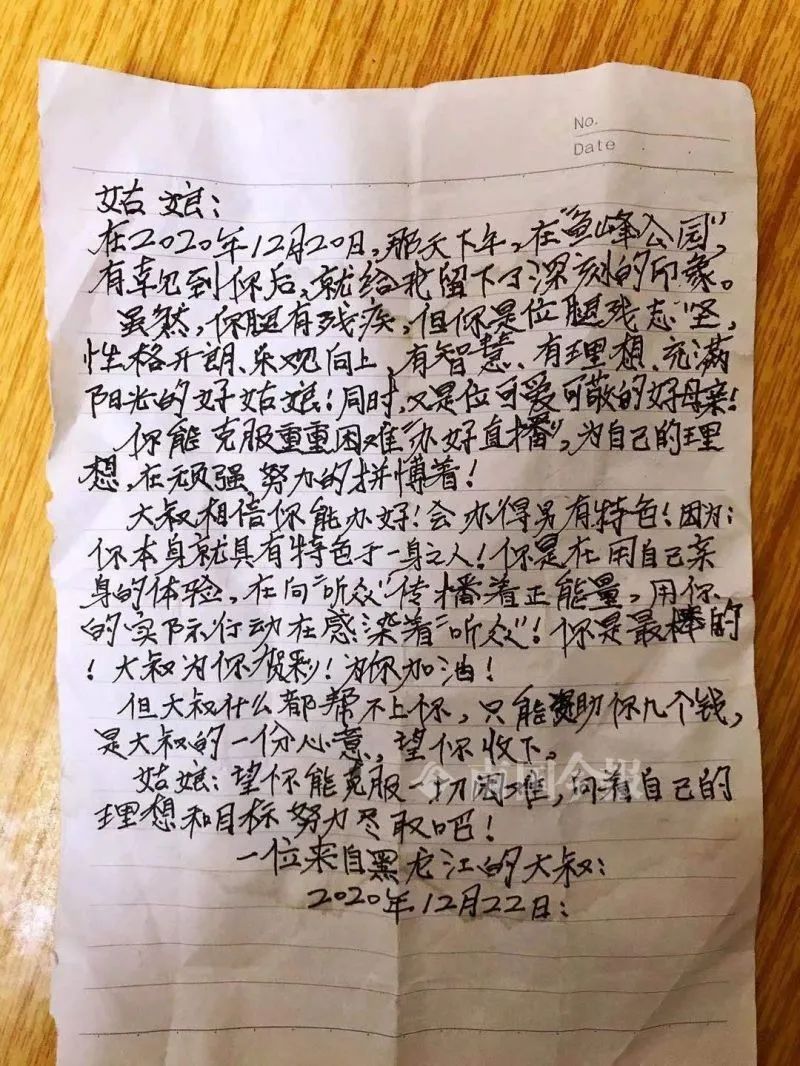 No.
Date
姑娘：
在2020年12月20日，那天下午，在“鱼峰公园”，
有幸见到你后，就给我留下了深刻的印象。
虽然，你腿有残疾，但你是位腿残志坚，
性格开朗、乐观向上，有智慧、有理想、充满
阳光的好姑娘！同时，又是位可爱可敬的好母亲！
你能克服重重困难“办好直播”，为自己的理
想，在顽强努力的拼博着！
大叔相信你能办好！会办得另有特色！因为：
你本身就具有特色于一身之人！你是在用自己亲
身的体验，在向“听众”传播着正能量，用你
的实际行动在感染着“听众”！你是最棒的
！大叔为你贺彩！为你加油！
但大叔什么都帮不上你，只能资助你几个钱，
是大叔的一份心意，望你收下。
南国今报
姑娘：望你能克服一切困难，向着自己的
理想和目标努力尽取吧！
一位来自黑龙江的大叔：
2020年12月22日：